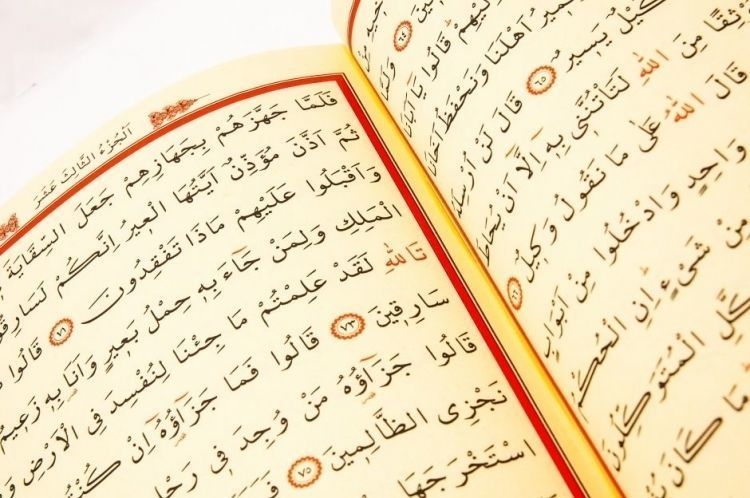 اِلَيْهِمْ قَالُوا يَٓا اَبَانَا
اَهْلَنَا وَنَحْفَظُ
كَيْلٌ يَسِيرٌ ﴿٦٥﴾ قَالَ لَنْ اُرْسِلَهُ
مِنَ اللّٰهِ لَتَأْتُنَّنِي بِهِٓ اِلَّٓا اَنْ يُحَاطَ
قَالَ اللّٰهُ عَلٰى مَا نَقُولُ وَكِيلٌ ﴿٦٦﴾
وَاحِدٍ وَادْخُلُوا مِنْ اَبْوَابٍ
مِنْ شَيْءٍ اِنِ الْحُكْمُ
الْمُتَوَكِّلُونَ
مَا كَانَ
اَلْجُزْءُ الثَّالِثَ عَشَرَ
فَلَمَّا جَهَّزَهُمْ بِجَهَازِهِمْ جَعَلَ السِّقَايَةَ
ثُمَّ اَذَّنَ مُؤَذِّنٌ اَيَّتُهَا الْعِيرُ اِنَّكُمْ لَسَارِقُونَ
وَاَقْبَلُوا عَلَيْهِمْ مَاذَا تَفْقِدُونَ ﴿٧١﴾ قَالُوا
الْمَلِكِ وَلِمَنْ جَٓاءَ بِهِ حِمْلُ بَعِيرٍ وَاَنَا بِهِ زَعِيمٌ
تَاللّٰهِ لَقَدْ عَلِمْتُمْ مَا جِئْنَا لِنُفْسِدَ فِي الْاَرْضِ
سَارِقِينَ ﴿٧٣﴾ قَالُوا فَمَا جَزَٓاؤُهُٓ اِنْ كُنْتُمْ
قَالُوا جَزَٓاؤُهُ مَنْ وُجِدَ فِي رَحْلِهِ
نَجْزِي الظَّالِمِينَ ﴿٧٥﴾
اسْتَخْرَجَهَا